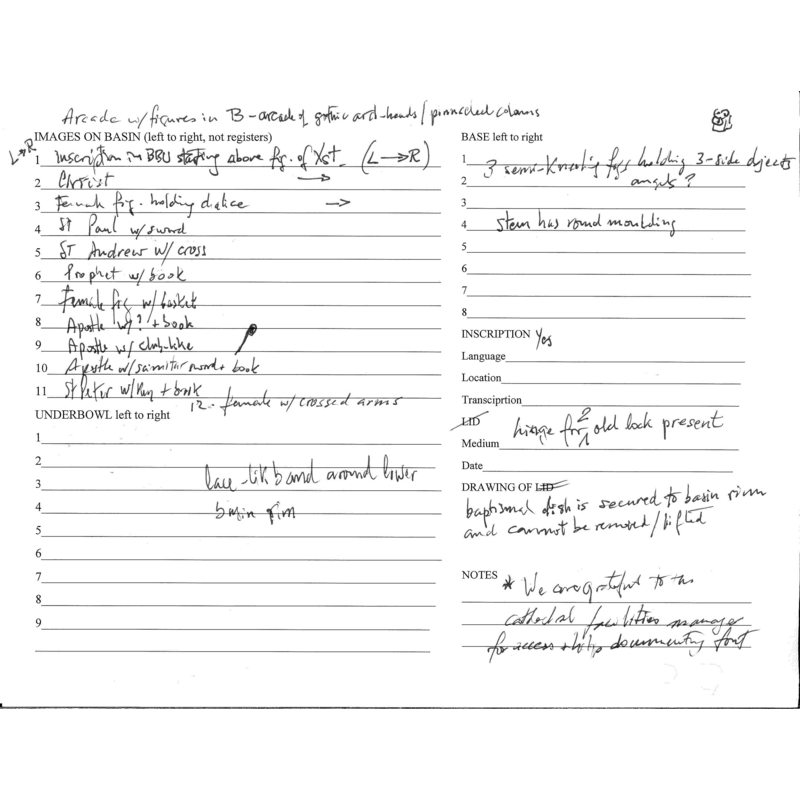 Arcade w/figures in B-arcade of gothic arch-heads/pinnacled colums
IMAGES ON BASIN (left to right, not registers)
L→R
1 Inscription in BBU starting above fig. of Xst. (L→R)
2 Christ →
3 Female fig. holding chalice →
4 St Paul w/sword
5 ST Andrew w/ cross
6 Prophet w/ book
7 Female fig w/basket
8 Apostle w/? + book
9 Apostle w/ club-like
10 Apostle w/ scimitar sword + book
11 St Peter w/key + book
12. female w/ crossed arms
UNDERBOWL left to right
1
2
3 lace-like band around lower
4 basin rim
5
6
7
8
9
BASE left to right
1 3 semi-kneeling figs holding 3-side objects
2 angels?
3
4 stem has round moulding
5
6
7
8
INSCRIPTION Yes
Language
Location
Transciprtion
LID
Medium hinge for old lock present
Date
DRAWING OF LID
baptismal dish is secured to basin rim
and cannot be removed/lifted
NOTES * We are grateful to the
cathedral facilities manager
for access + help documenting font